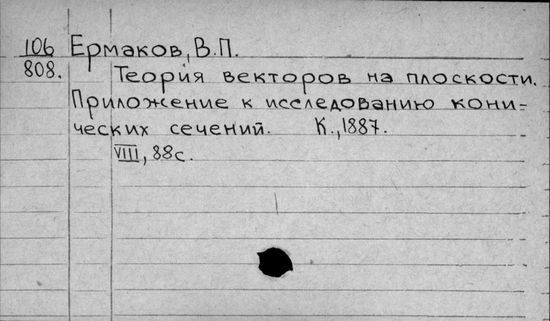 106 Ермаков, В.П.
808. Теория векторов на плоскости.
Приложение к исследованию кони-
ческих сечений. К., 1887.
VIII, 88с.